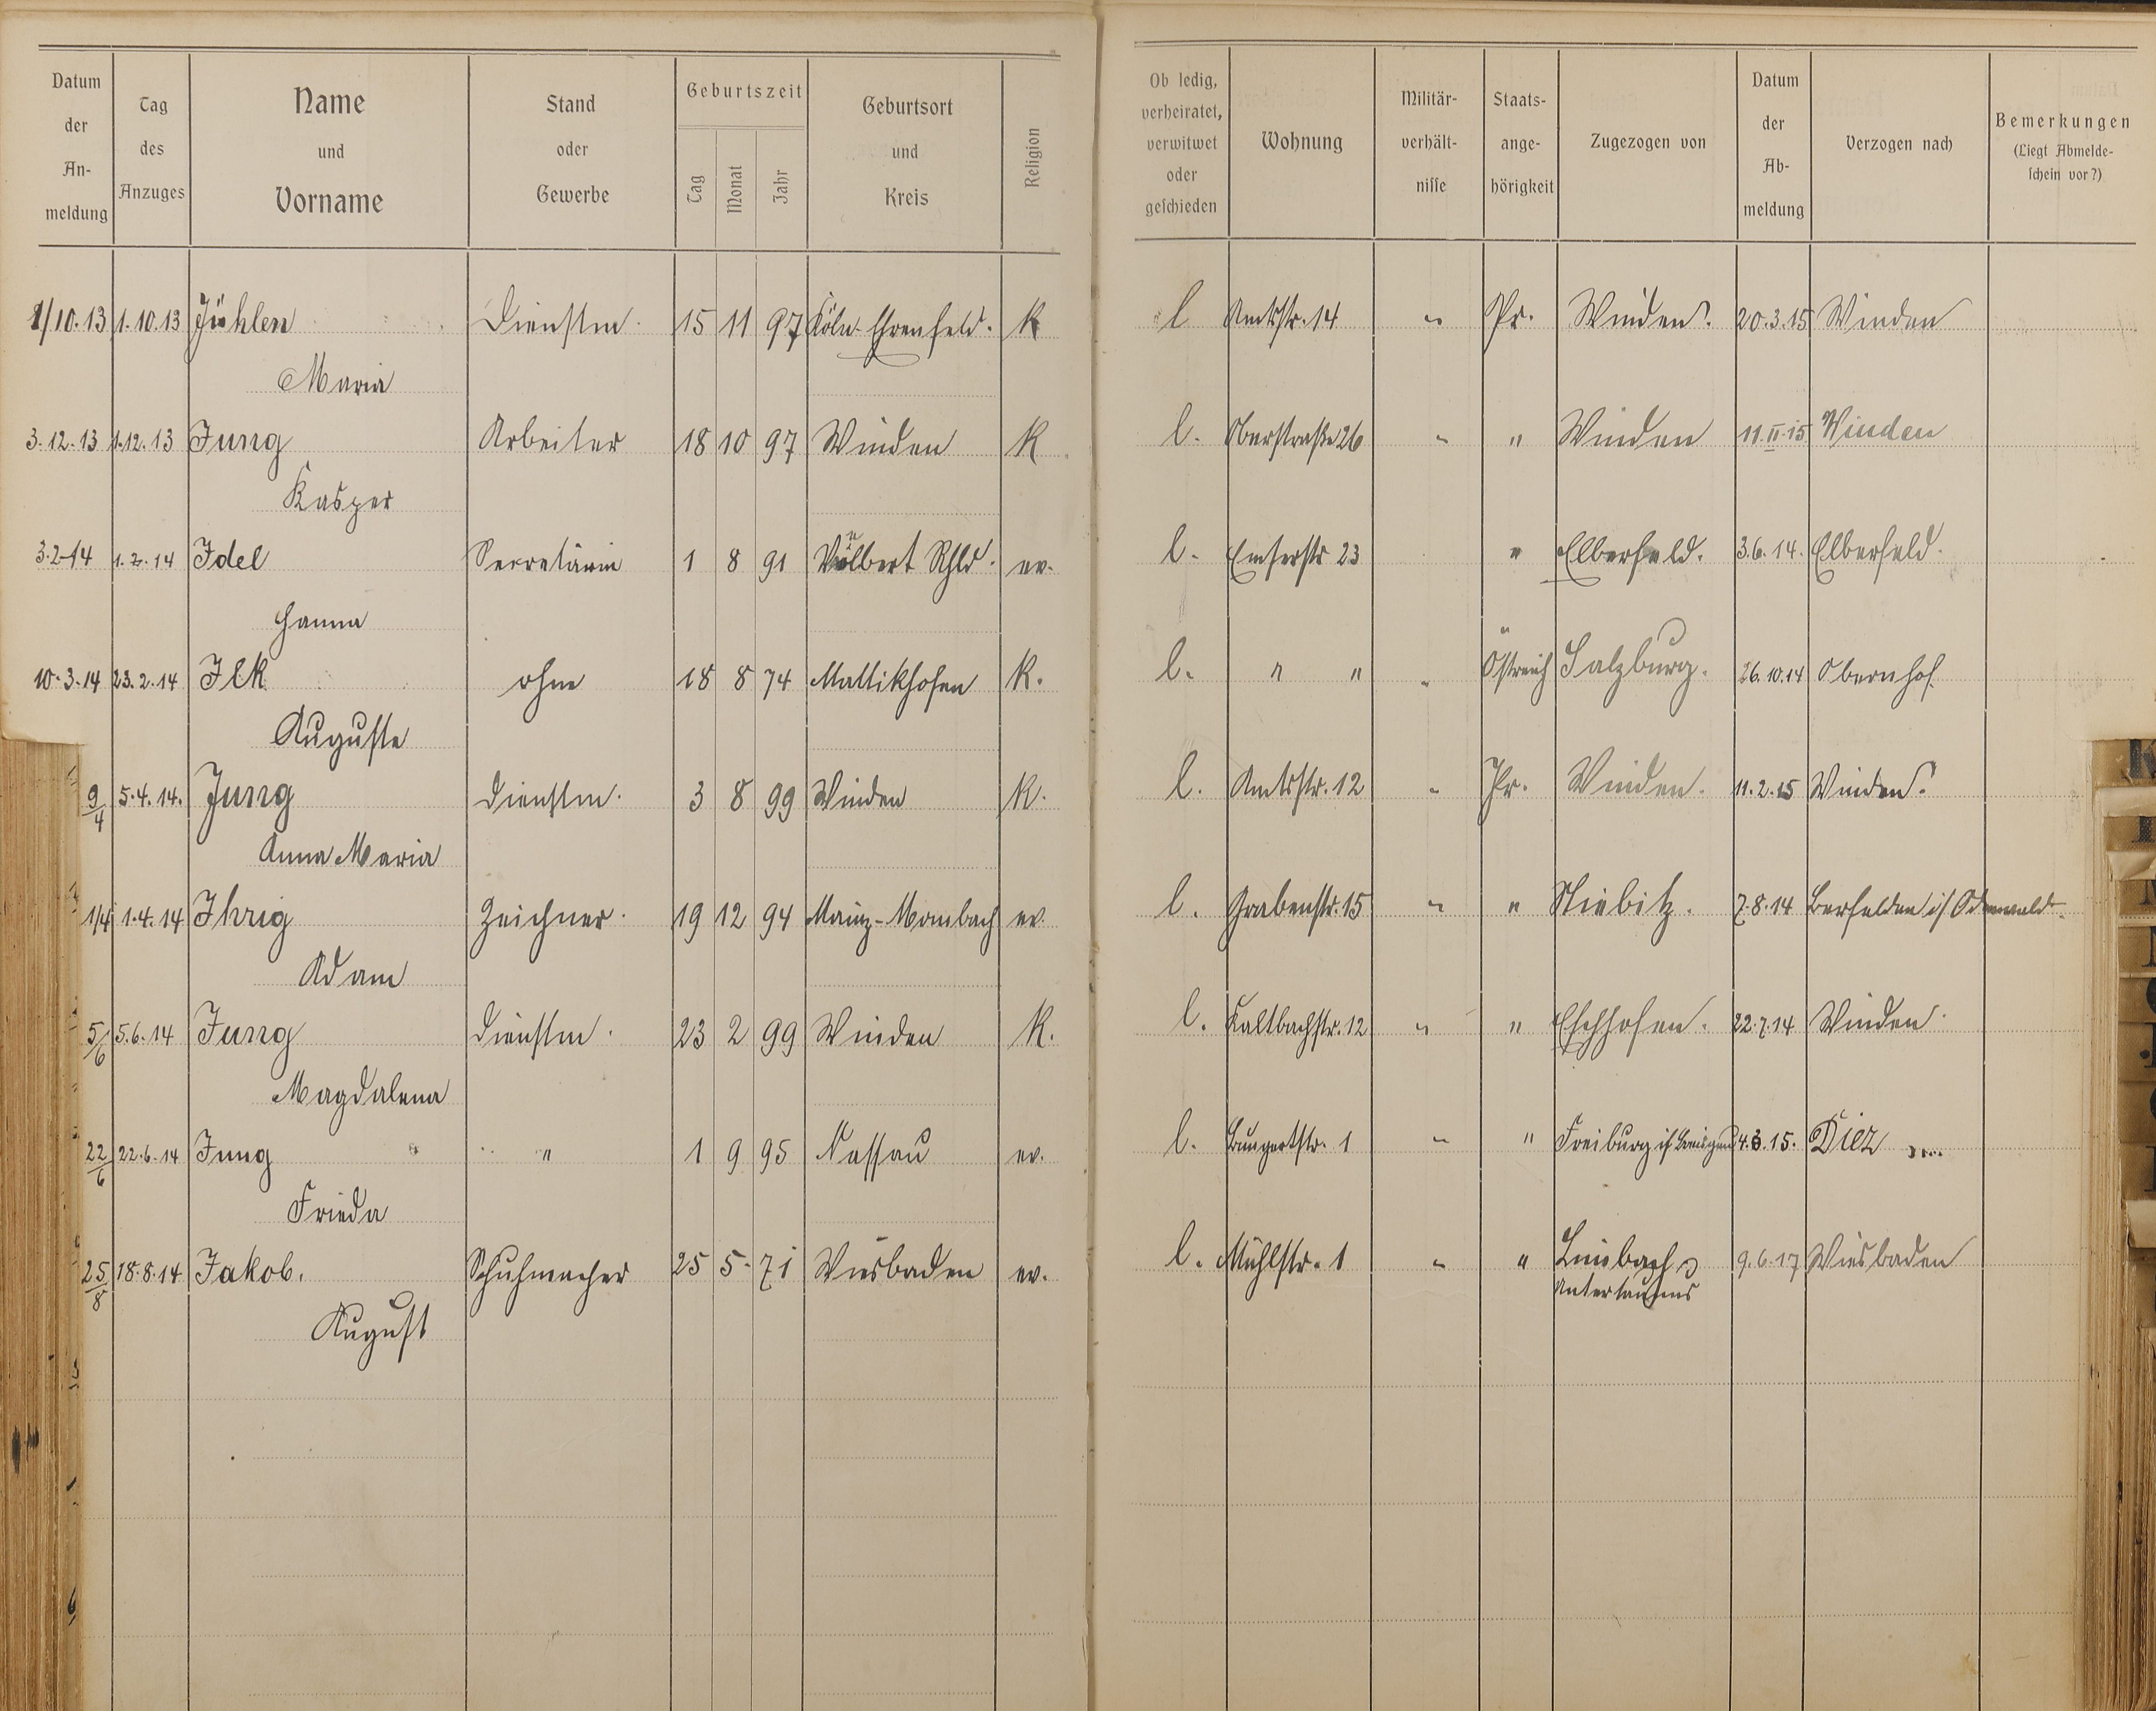 Datum der Anmeldung | Tag des Anzuges | Name und Vorname | Stand oder Gewerbe | Geburtszeit Tag Monat Jahr | Geburtsort und Kreis | Religion | Ob ledig, verheiratet, verwitwet oder geschieden | Wohnung | Militärverhältnisse | Staatsangehörigkeit | Zugezogen von | Datum der Abmeldung | Verzogen nach | Bemerkungen (Liegt Abmeldeschein vor?)
1/10.13 1.10.13 Jühlen Dienstm. 15 11 97 Köln-Ehrenfeld. K l Amtsstr. 14 " Pr. Winden. 20.3.15 Winden
Maria
3.12.13 1.12.13 Jung Arbeiter 18 10 97 Winden K l. Oberstraße 26 " " Winden 11.II.15 Winden
Kasper
3.2.14 1.2.14 Idel Secretärin 1 8 91 Rhld. ev. l. Emserstr 23 " Elberfeld. 3.6.14. Elberfeld.
Hanna
10.3.14 23.2.14 Ilk ohne 18 8 74 Mattikhofen K. l. " " " Östreich Salzburg. 26.10.14 Obernhof.
Auguste
9/4 5.4.14. Jung Dienstm. 3 8 99 Winden K. l. Amtsstr. 12 " Pr. Winden. 11.2.15 Winden.
Anna Maria
1/4 1.4.14 Ihrig Zeichner. 19 12 94 Mainz-Mombach ev. l. Grabenstr. 15 " " 7.8.14 Berfelden i/ Odenwald.
Adam
5/6 5.6.14 Jung Dienstm. 23 2 99 Winden K. l. Kaltbachstr. 12 " " Eschhofen. 22.7.14 Winden.
Magdalena
22/6 22.6.14 Jung " 1 9 95 Nassau ev. l. Bungertstr. 1 " " Freiburg i/ Breisgau 4.3.15. Diez
Frieda
25/8 18.8.14 Jakob. Schuhmacher 25 5. 71 Wiesbaden ev. l. Mühlstr. 1 " " 9.6.17 Wiesbaden
Untertaunus
August